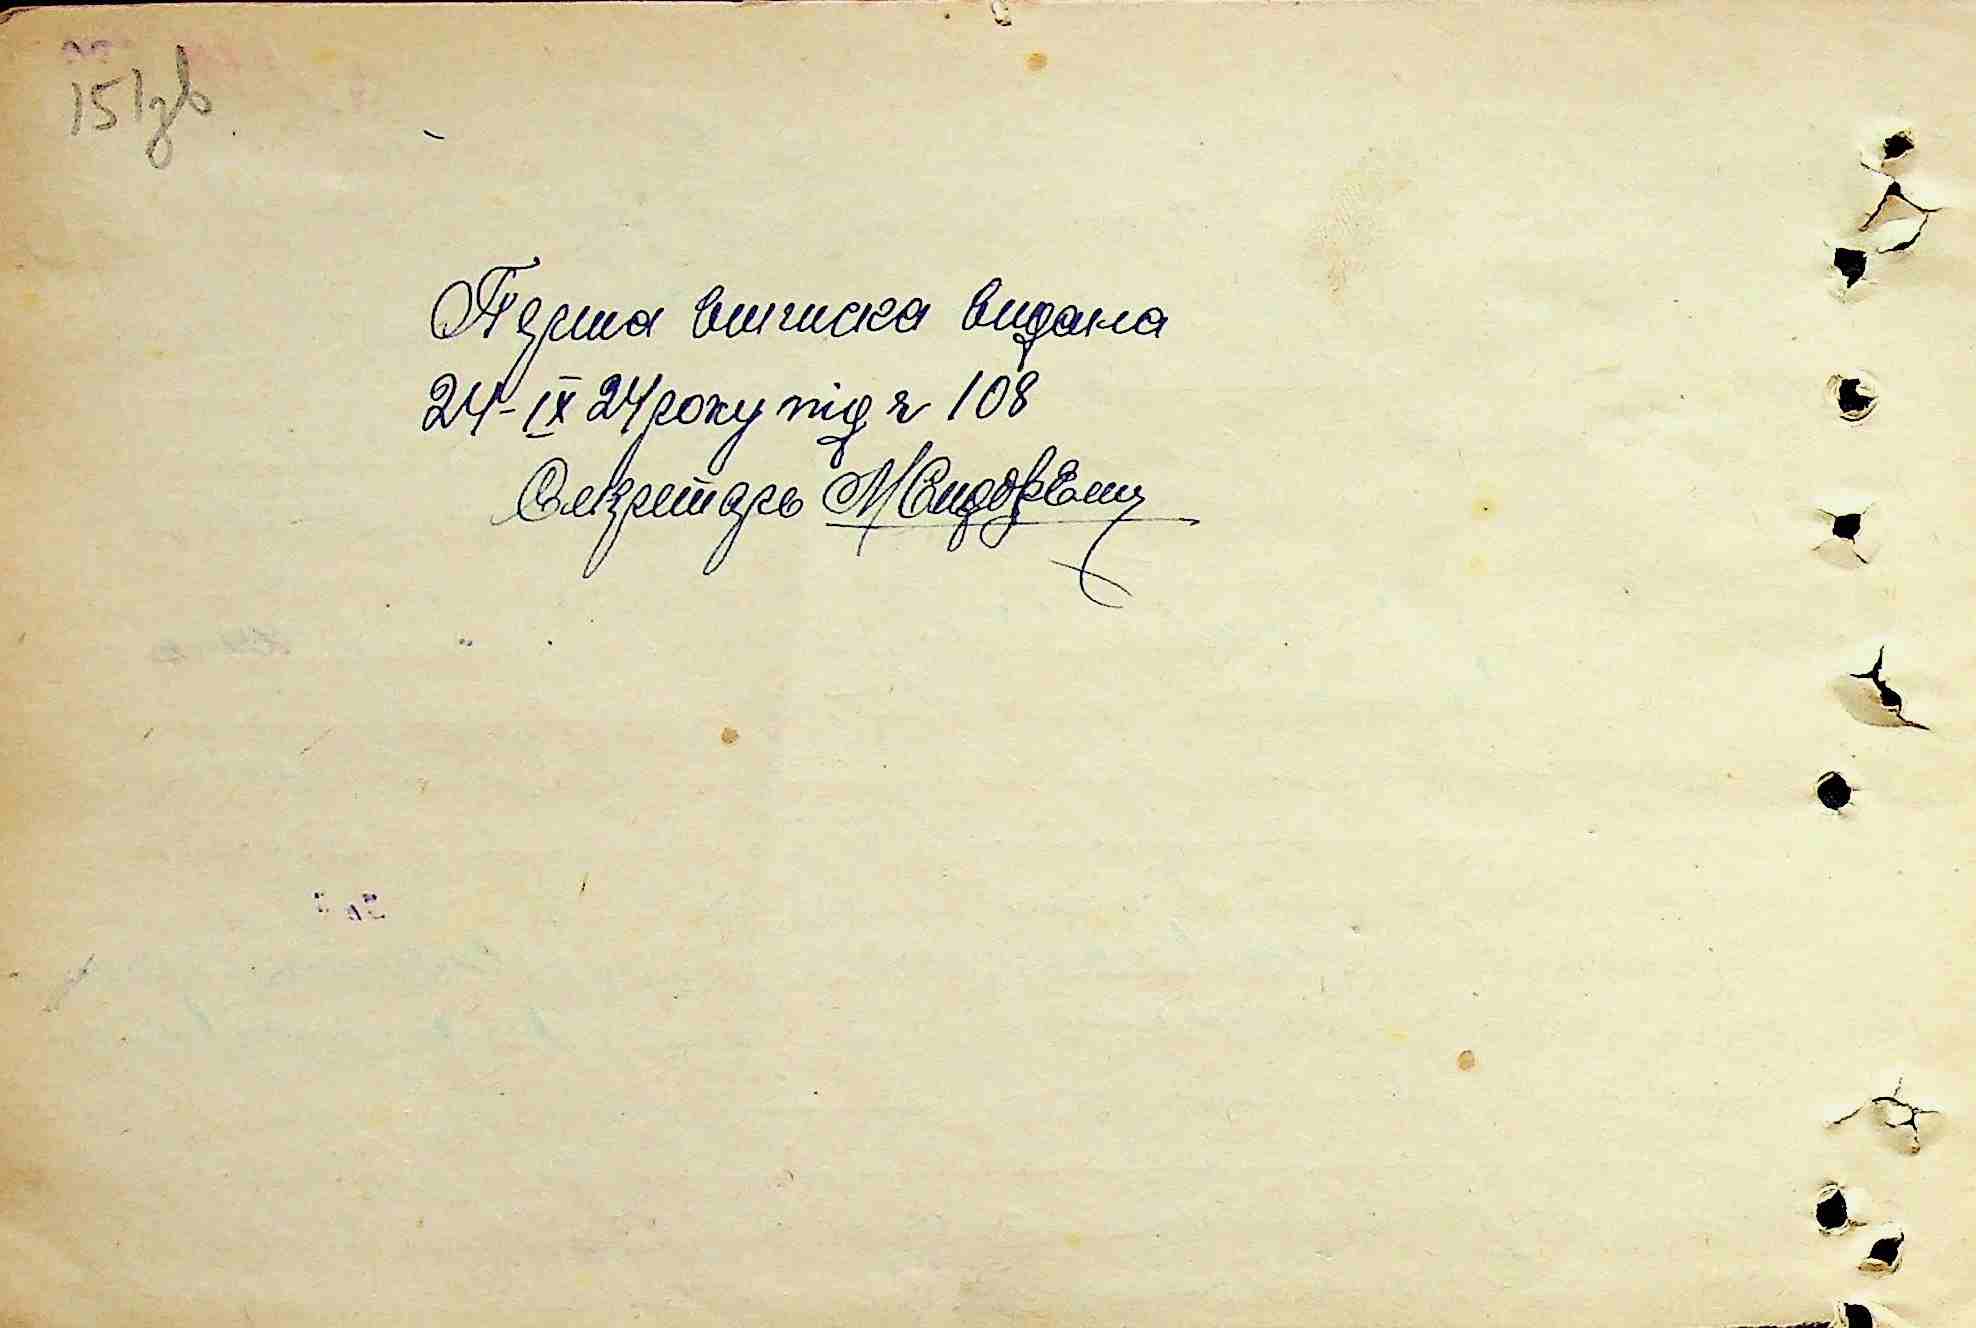 151зв
Перша виписка видана
24-IX 24 року під ч 108
Секретарь